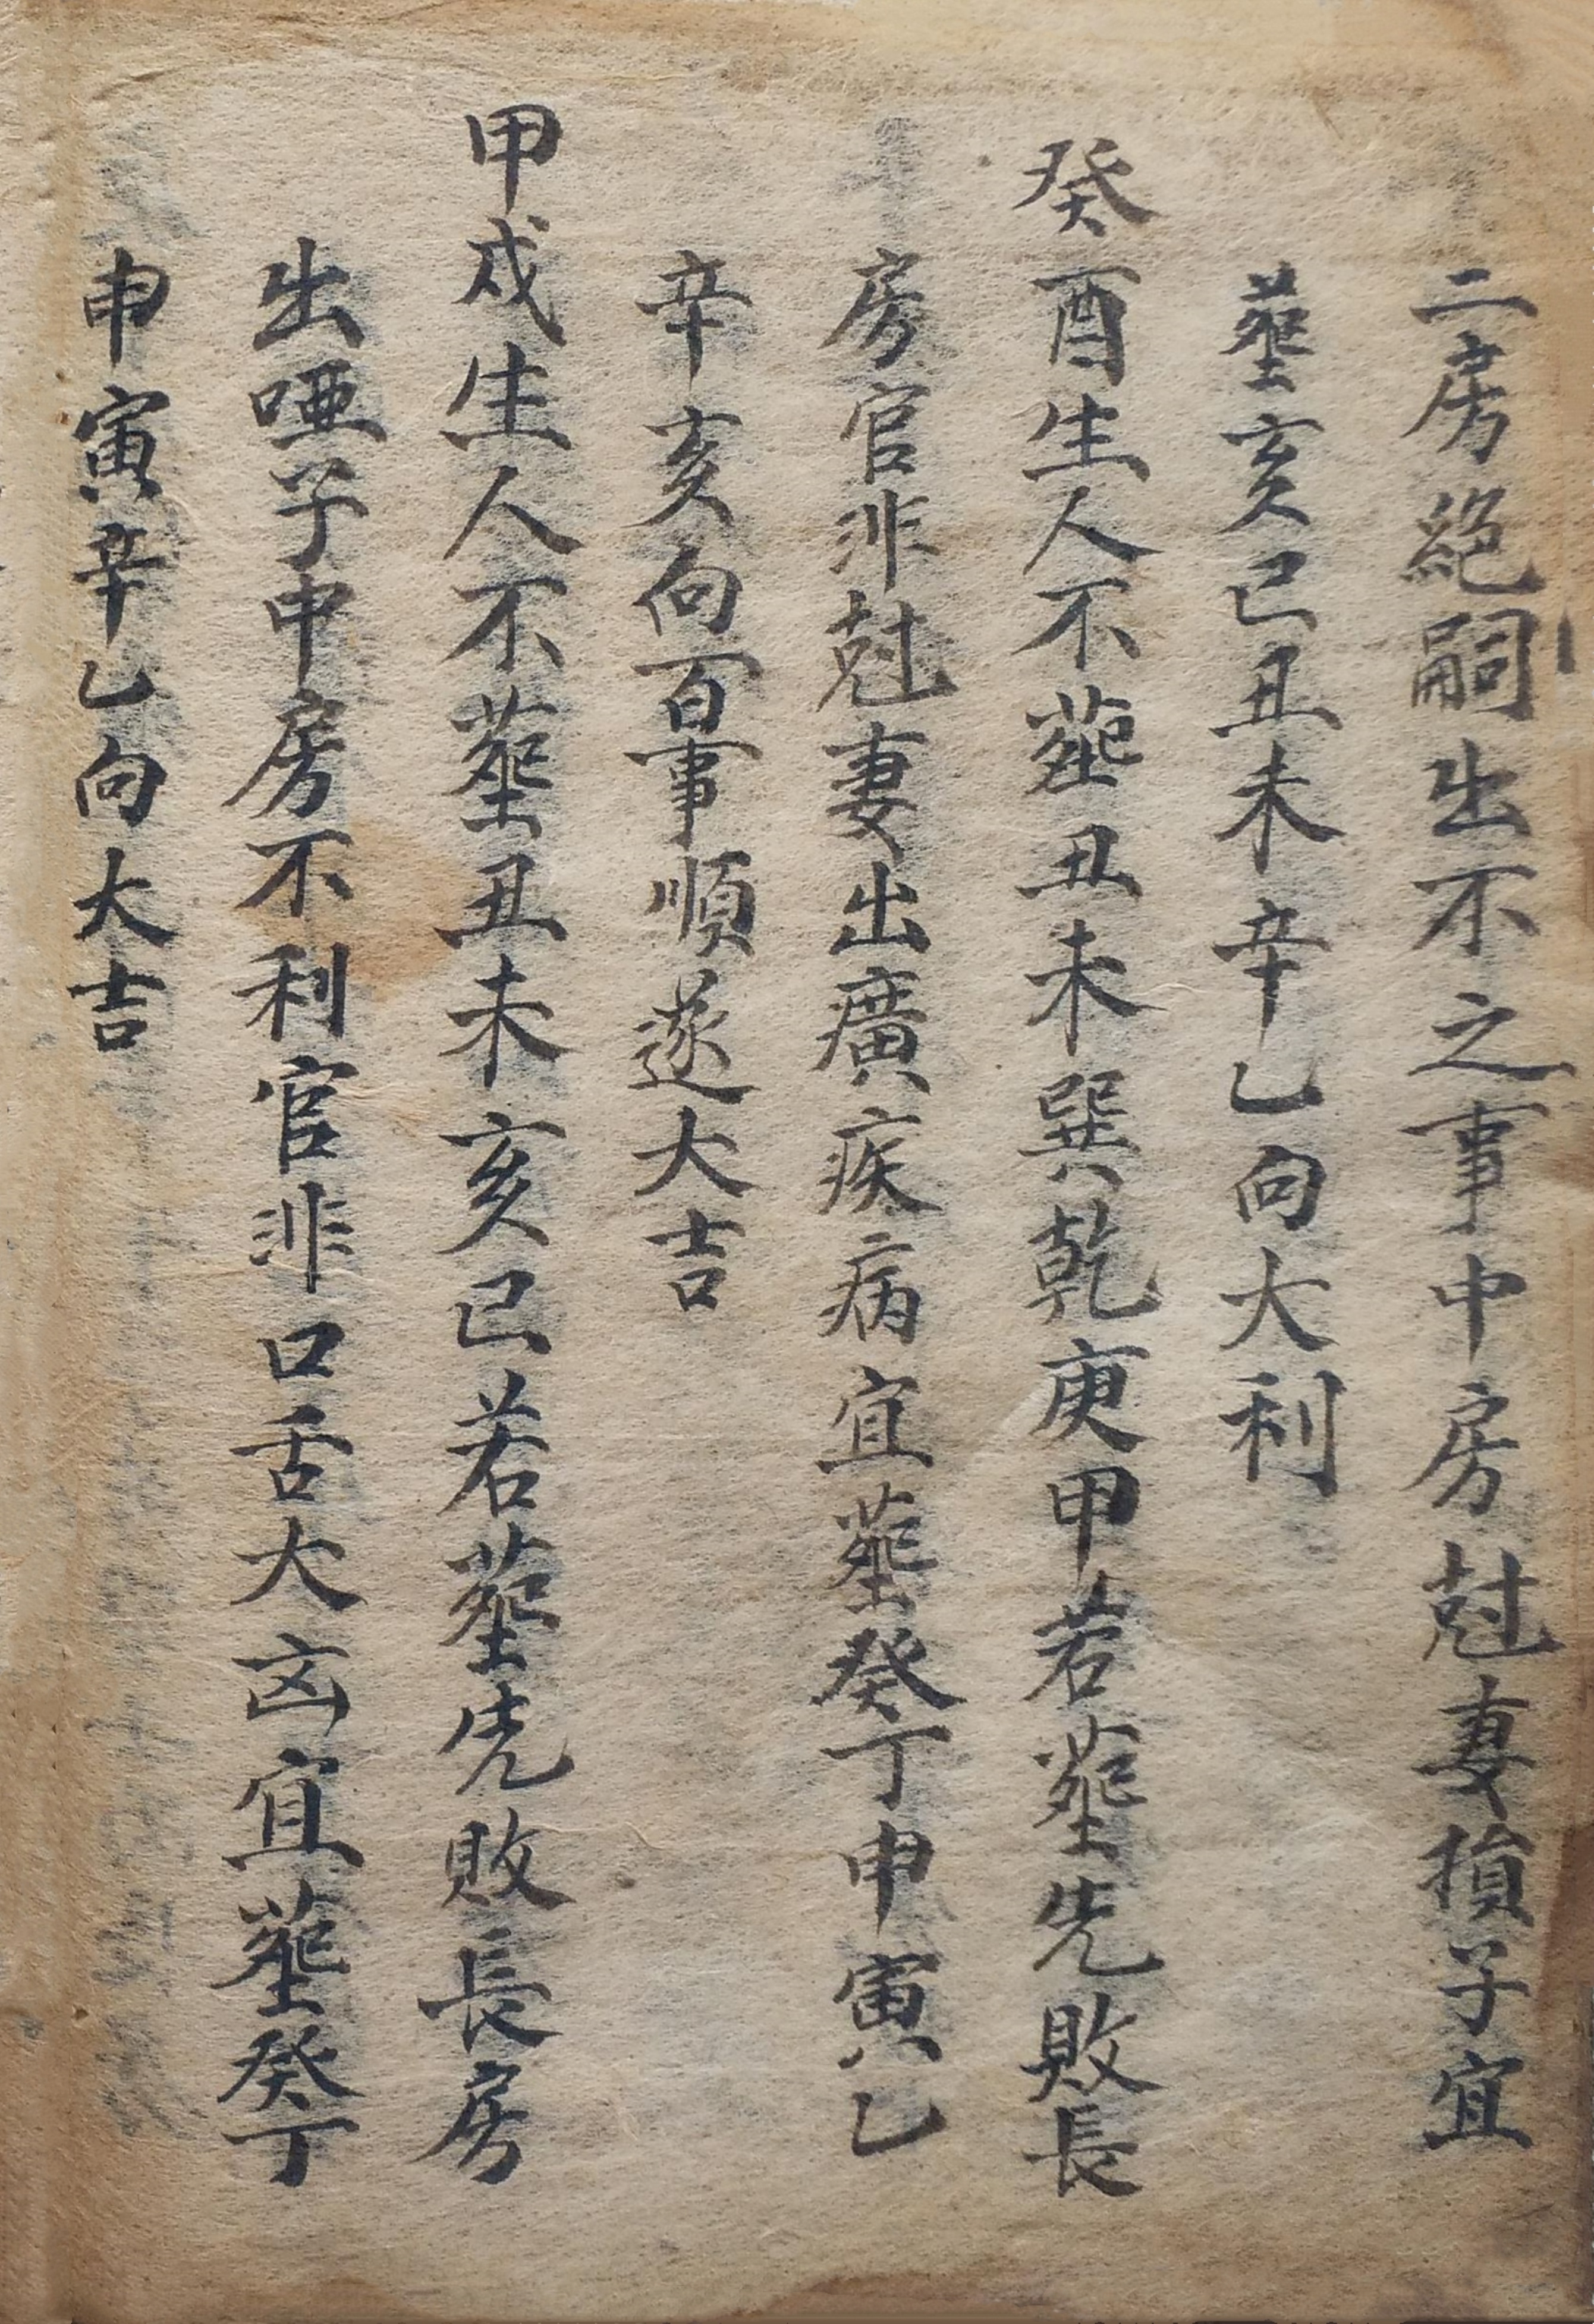 二房絕嗣出不之事中房尅妻損子宜
塟亥巳丑未辛乙向大利
癸酉生人不塟丑未巽乾庚甲若塟先敗長
房官非尅妻出癀疾病宜塟癸丁申寅乙
辛亥向百事順遂大吉
甲戌生人不塟丑未亥巳若塟先敗長房
出啞子中房不利官非口舌大凶宜塟癸丁
申寅辛乙向大吉